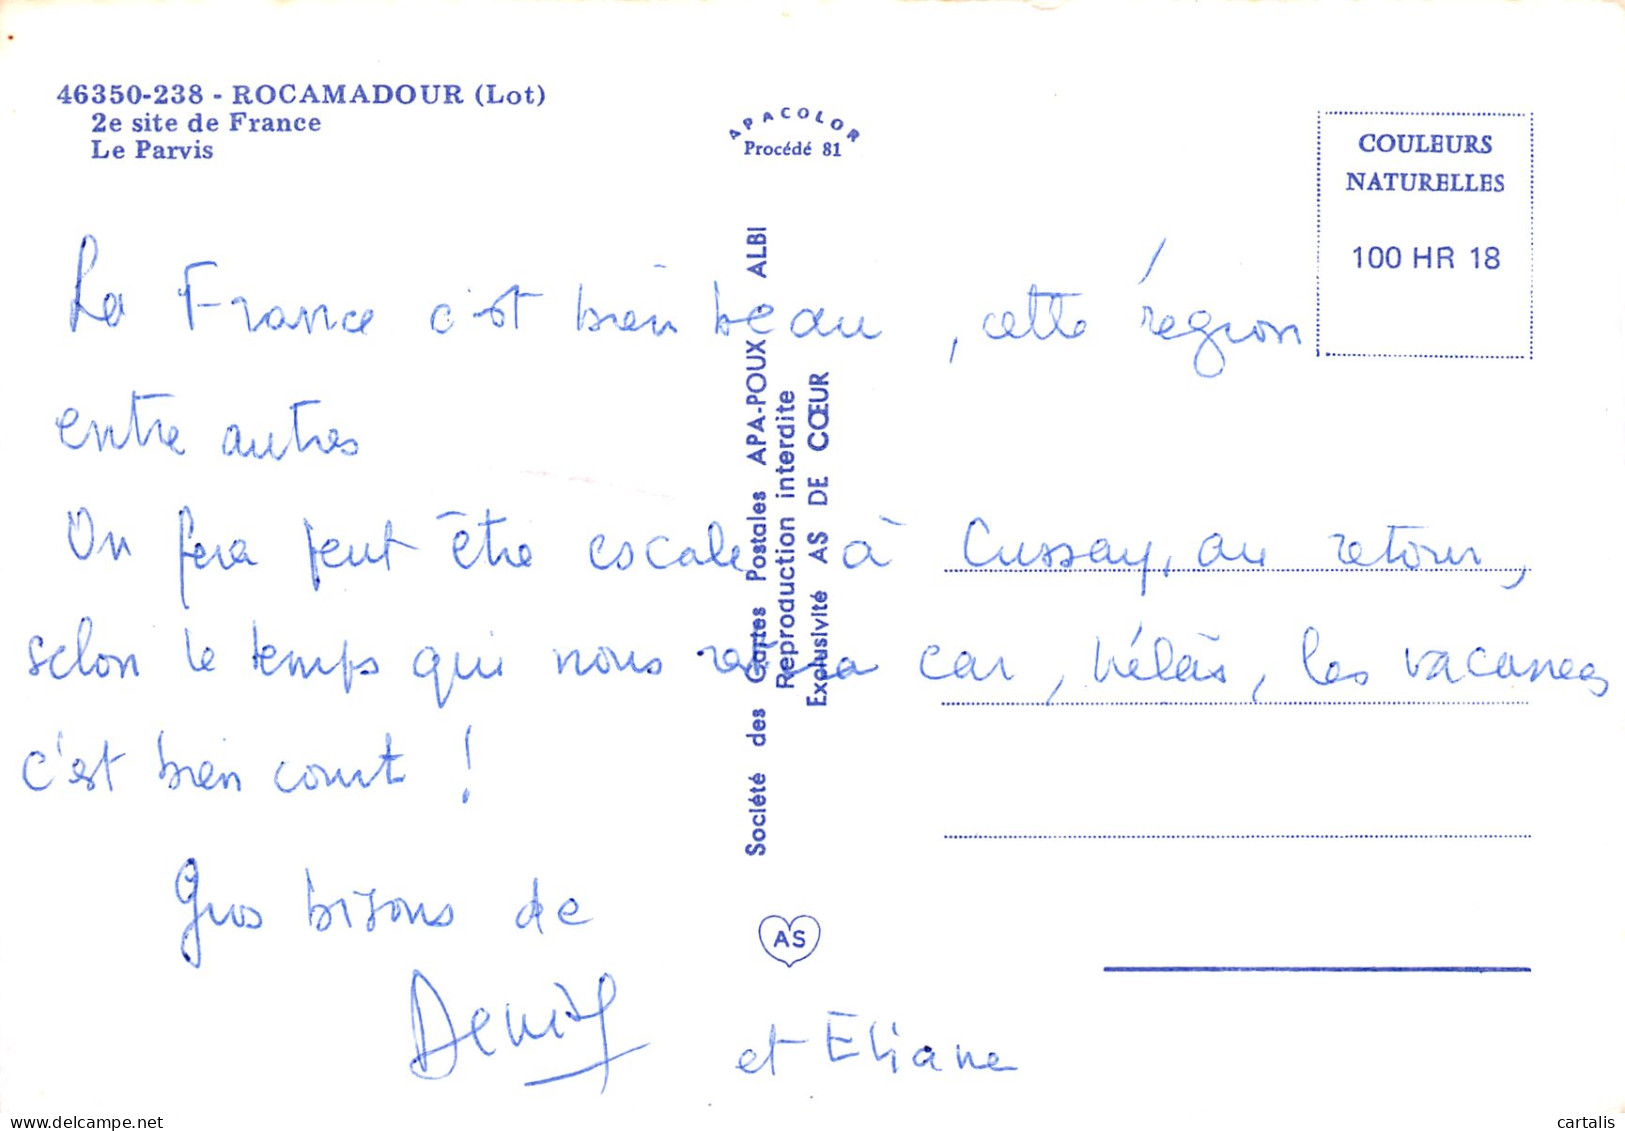 46350-238 - ROCAMADOUR (Lot)
2e site de France
Le Parvis
APACOLOR
Procédé 81
COULEURS
NATURELLES
100 HR 18
La France c'est bien beau, cette région
entre autres
On fera peut être escale à Cussay, au retour,
selon le temps qui nous restera car, hélàs, les vacances
c'est bien court !
Gros bisous de
Denis
et Eliane
Société des Cartes Postales APA-POUX ALBI
Reproduction interdite
Exclusivité AS DE CŒUR
AS
delcampe.net
cartalis